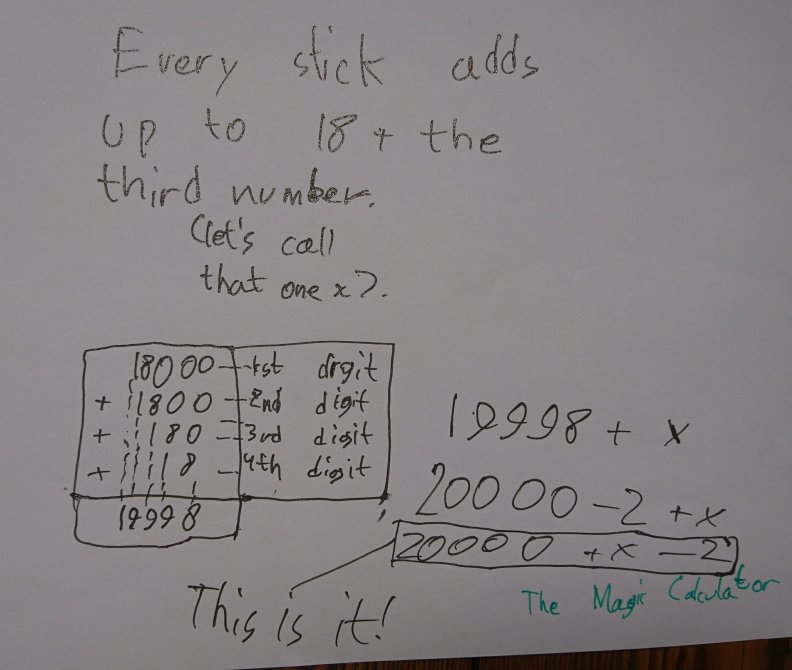 Every stick adds
up to 18 + the
third number.
(let's call
that one x).
18000 - 1st digit
+ 1800 - 2nd digit
+ 180 - 3rd digit
+ 18 - 4th digit
19998
19998 + x
20000 - 2 + x
20000 + x - 2
This is it!
The Magic Calculator